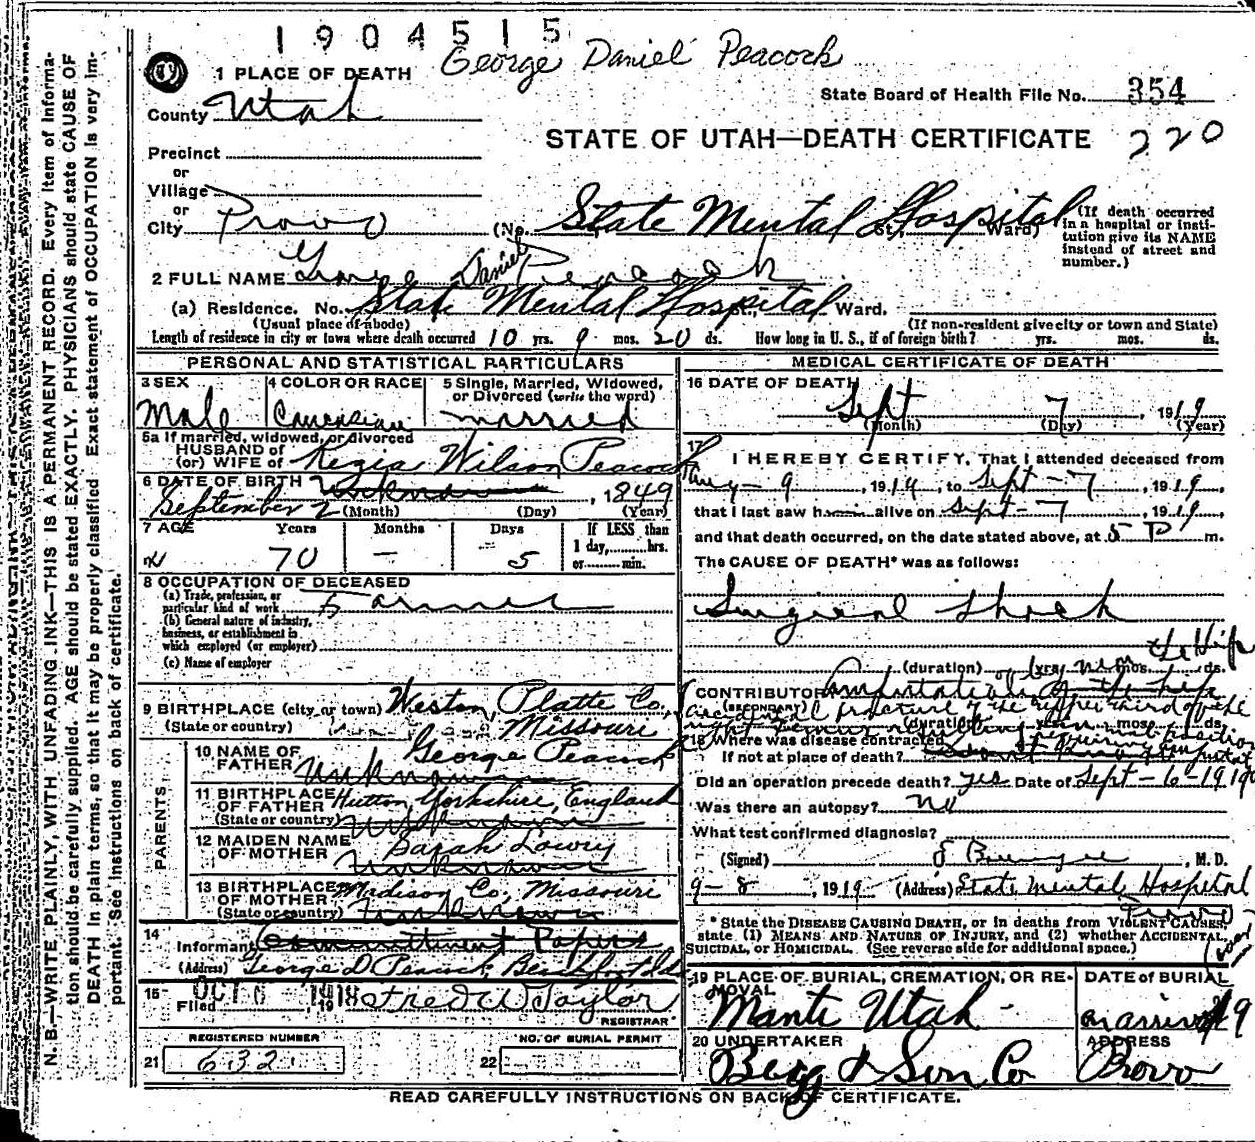 1904515
George Daniel Peacock
1 PLACE OF DEATH
State Board of Health File No. 354
County Utah
STATE OF UTAH—DEATH CERTIFICATE
220
Precinct
or
Village
or
City Provo (No. State Mental Hospital St., Ward)
(If death occurred in a hospital or institution give its NAME instead of street and number.)
2 FULL NAME George Daniel Peacock
(a) Residence. No. State Mental Hospital St., Ward.
(Usual place of abode) (If non-resident give city or town and State)
Length of residence in city or town where death occurred 10 yrs. 9 mos. 20 ds. How long in U. S., if of foreign birth? yrs. mos. ds.
PERSONAL AND STATISTICAL PARTICULARS
3 SEX
Male
4 COLOR OR RACE
Caucasian
5 Single, Married, Widowed, or Divorced (write the word)
married
5a If married, widowed, or divorced
HUSBAND of
(or) WIFE of Kezia Wilson Peacock
6 DATE OF BIRTH unknown, 1849
September 2 (Month) (Day) (Year)
7 AGE Years Months Days If LESS than
70 — 5 1 day, hrs.
or min.
8 OCCUPATION OF DECEASED
(a) Trade, profession, or
particular kind of work Farmer
(b) General nature of industry,
business, or establishment in
which employed (or employer)
(c) Name of employer
9 BIRTHPLACE (city or town) Weston, Platte Co.,
(State or country) Missouri
PARENTS
10 NAME OF FATHER George Peacock
Unknown
11 BIRTHPLACE OF FATHER Hutton, Yorkshire, England
(State or country) Unknown
12 MAIDEN NAME OF MOTHER Sarah Lowry
Unknown
13 BIRTHPLACE OF MOTHER Madison Co., Missouri
(State or country) Unknown
14
Informant Committment Papers
(Address) George D Peacock,
15 Filed OCT 6 1918 Fred W Taylor
REGISTRAR
REGISTERED NUMBER
21 632
NO. OF BURIAL PERMIT
22
MEDICAL CERTIFICATE OF DEATH
16 DATE OF DEATH
Sept 7, 1919
(Month) (Day) (Year)
17
I HEREBY CERTIFY, That I attended deceased from
Aug - 9, 1919, to Sept - 7, 1919,
that I last saw him alive on Sept - 7, 1919,
and that death occurred, on the date stated above, at 5 P m.
The CAUSE OF DEATH* was as follows:
Surgical Shock
(duration) yrs. mos. ds.
CONTRIBUTORY Amputation of the hip
(SECONDARY) accidental fracture of the upper third of the
(duration) yrs. mos. ds.
right femur
18 Where was disease contracted
If not at place of death?
Did an operation precede death? yes Date of Sept - 6 - 1919
Was there an autopsy? no
What test confirmed diagnosis?
(Signed) , M. D.
9 - 8, 1919 (Address) State Mental Hospital
Provo
*State the DISEASE CAUSING DEATH, or in deaths from VIOLENT CAUSES, state (1) MEANS AND NATURE OF INJURY, and (2) whether ACCIDENTAL, SUICIDAL, or HOMICIDAL. (See reverse side for additional space.)
19 PLACE OF BURIAL, CREMATION, OR REMOVAL
Manti Utah
DATE of BURIAL
on arrival 19
20 UNDERTAKER
Berg & Son Co
ADDRESS
Provo
READ CAREFULLY INSTRUCTIONS ON BACK OF CERTIFICATE.
N. B.—WRITE PLAINLY, WITH UNFADING INK—THIS IS A PERMANENT RECORD. Every item of information should be carefully supplied. AGE should be stated EXACTLY. PHYSICIANS should state CAUSE OF DEATH in plain terms, so that it may be properly classified. Exact statement of OCCUPATION is very important. See instructions on back of certificate.